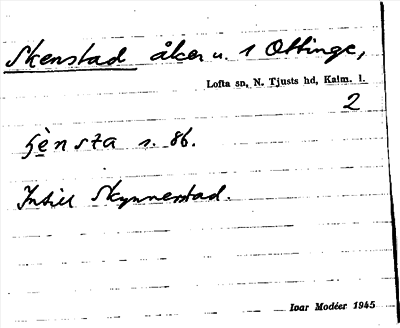 Skenstad åker u. 1 Ottinge,
Lofta sn, N. Tjusts hd, Kalm. l.
2
s. 86.
Intill Skynnerstad.
Ivar Modéer 1945